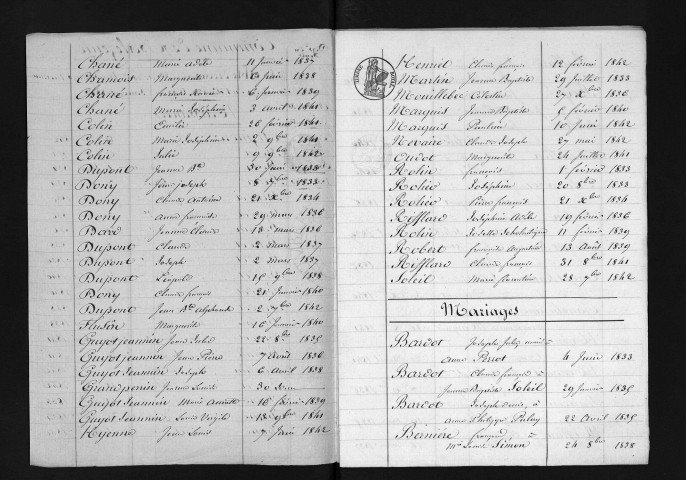 Chané Marie Adèle 11 Janvier 1837
Chamois Marguerite Juin 1838
Chané 6 Janvier 1839
Chané Marie Joséphine 3 avril 1841
Colin Emilie 26 février 1841
Colin Marie Joséphine 2 9bre 1841
Colin Julie 9 9bre 1842
Dupont Jeanne Bte 30 Juin 1833
Dony Jean Joseph 8 1833
Dony Claude Antoine 21 Xbre 1834
Dony Anne 29 mars 1836
Jeanne Claude 13 mars 1836
Dupont Claude 2 mars 1837
Dupont Joseph 2 mars 1837
Dupont Léopold 16 9bre 1838
Dony Claude François 21 Janvier 1840
Dupont Jean Bte Alphonse 2 7bre 1842
Marguerite 16 Janvier 1840
Guyot Jeannin 22 8bre 1835
Guyot Jeannin Jean Pierre 7 Avril 1836
Guyot Jeannin Joseph 6 Avril 1838
Grandperrin Louis 30
Guyot Jeannin Marie 16 février 1839
Guyot Jeannin Virgile 13 9bre 1841
Hyenne Louis 7 Juin 1842
Henriet Claude François 12 février 1842
Martin Jeanne Baptiste 29 Juillet 1833
Mouillebée Célestin 27 Xbre 1836
Marguis Jeanne Baptiste 8 février 1840
Marguis Pauline 10 Juin 1842
Nevaire Claude Joseph 27 mai 1842
Oudot Marguerite 24 Juillet 1841
Rolin François 1 février 1833
Joséphine 20 8bre 1833
Pierre François 21 Xbre 1834
Rifflard Joséphine Adèle 19 février 1836
Rolin Scholastique 11 février 1839
Robert Françoise Augustine 13 Avril 1839
Rifflard Claude François 31 8bre 1841
Soleil Marie Florentine 28 7bre 1842
Mariages
Bardot Joseph
Anne Perrot 4 Juin 1833
Bardot Claude François
Jeanne Baptiste Soleil 29 Janvier 1835
Bardot Joseph Denis à
Anne Philippe 22 Avril 1835
François à
Simon 24 8bre 1838